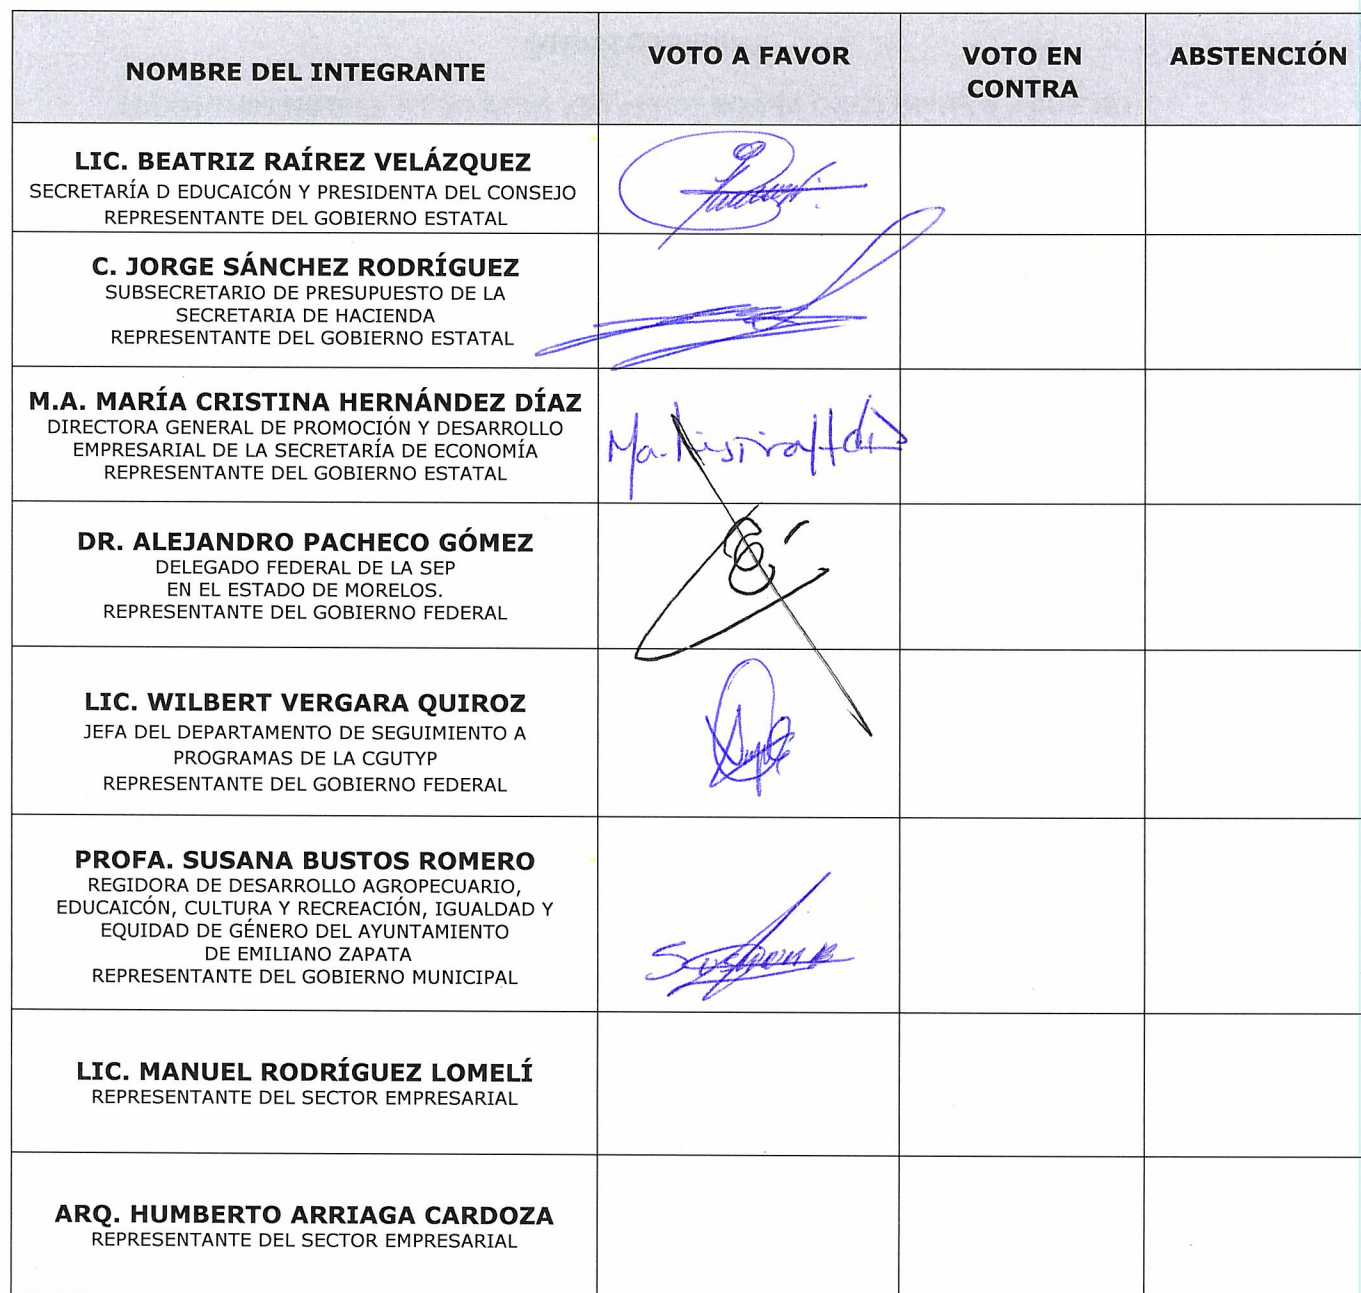 NOMBRE DEL INTEGRANTE
VOTO A FAVOR
VOTO EN
CONTRA
ABSTENCIÓN
LIC. BEATRIZ RAÍREZ VELÁZQUEZ
SECRETARÍA D EDUCAICÓN Y PRESIDENTA DEL CONSEJO
REPRESENTANTE DEL GOBIERNO ESTATAL
C. JORGE SÁNCHEZ RODRÍGUEZ
SUBSECRETARIO DE PRESUPUESTO DE LA
SECRETARIA DE HACIENDA
REPRESENTANTE DEL GOBIERNO ESTATAL
M.A. MARÍA CRISTINA HERNÁNDEZ DÍAZ
DIRECTORA GENERAL DE PROMOCIÓN Y DESARROLLO
EMPRESARIAL DE LA SECRETARÍA DE ECONOMÍA
REPRESENTANTE DEL GOBIERNO ESTATAL
Ma.
DR. ALEJANDRO PACHECO GÓMEZ
DELEGADO FEDERAL DE LA SEP
EN EL ESTADO DE MORELOS.
REPRESENTANTE DEL GOBIERNO FEDERAL
LIC. WILBERT VERGARA QUIROZ
JEFA DEL DEPARTAMENTO DE SEGUIMIENTO A
PROGRAMAS DE LA CGUTYP
REPRESENTANTE DEL GOBIERNO FEDERAL
PROFA. SUSANA BUSTOS ROMERO
REGIDORA DE DESARROLLO AGROPECUARIO,
EDUCAICÓN, CULTURA Y RECREACIÓN, IGUALDAD Y
EQUIDAD DE GÉNERO DEL AYUNTAMIENTO
DE EMILIANO ZAPATA
REPRESENTANTE DEL GOBIERNO MUNICIPAL
LIC. MANUEL RODRÍGUEZ LOMELÍ
REPRESENTANTE DEL SECTOR EMPRESARIAL
ARQ. HUMBERTO ARRIAGA CARDOZA
REPRESENTANTE DEL SECTOR EMPRESARIAL